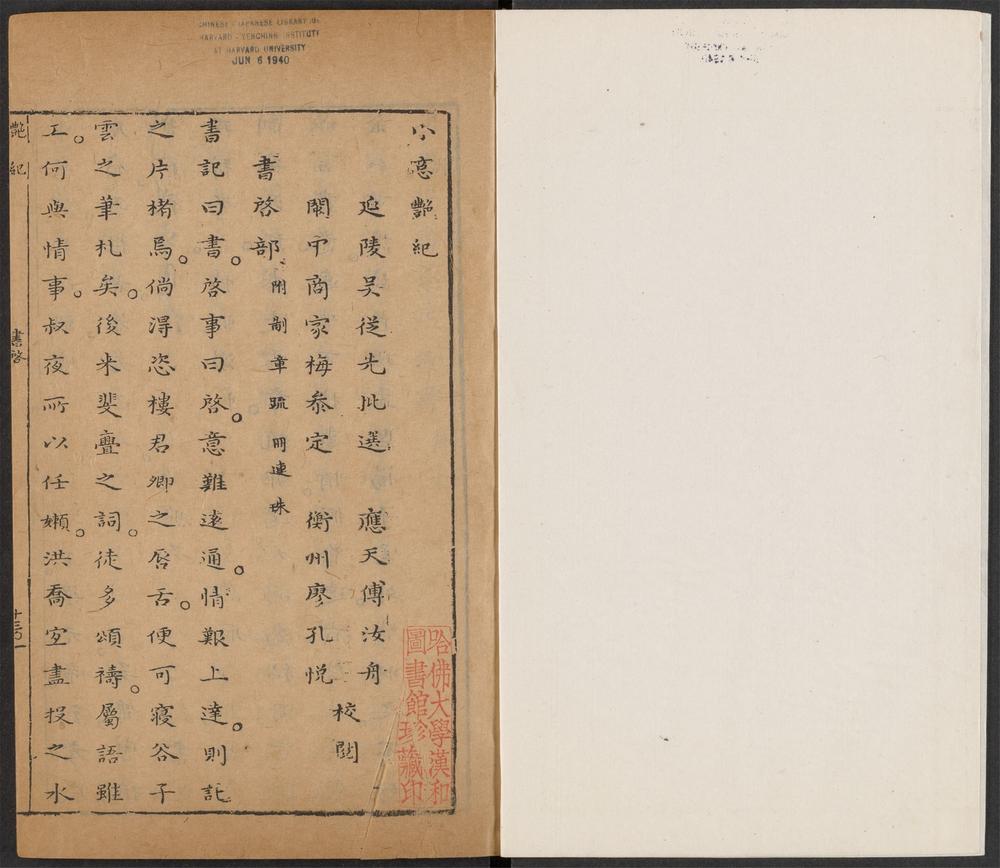 CHINESE-JAPANESE LIBRARY OF
HARVARD-YENCHING INSTITUTE
AT HARVARD UNIVERSITY
JUN 6 1940
小窓艷紀
延陵吳從先批選 應天傅汝舟
閩中商家梅叅定 衡州廖孔悅
校閱
書啓部 附制章䟽冊連珠
書記曰書。啓事曰啓。意難遠通。情艱上達。則託
之片楮焉。倘得恣樓君卿之唇舌。便可寢谷子
雲之筆札矣。後來斐亹之詞。徒多頌禱。屬語雖
工。何與情事。叔夜所以任嬾。洪喬室盡投之水
艷紀
書啓
哈佛大學漢和
圖書館珍藏印